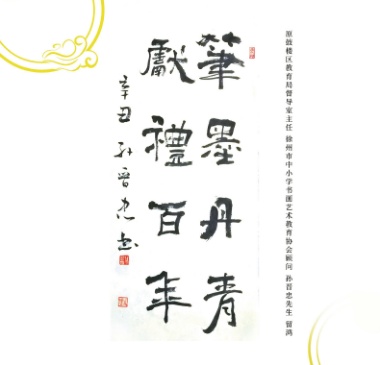 原鼓楼区教育局督导室主任 徐州市中小学书画艺术教育协会顾问 孙晋忠先生 留鸿
筆墨丹青
獻禮百年
辛丑 孙晋忠书